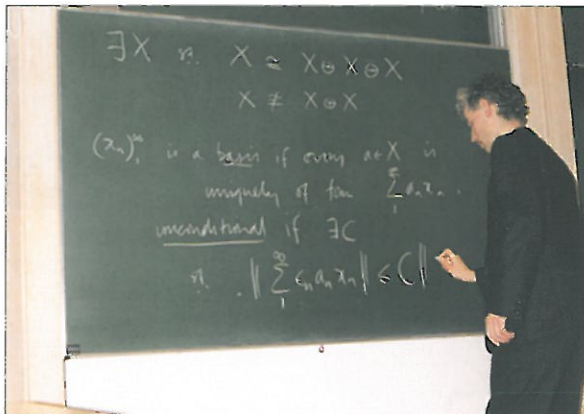 ∃X s.t. X ≃ X⊕X⊕X
X ≄ X⊕X
(xₙ)₁^∞ is a basis if every a∈X is
uniquely of form ∑₁^∞ aₙxₙ.
unconditional if ∃C
s.t. ‖∑₁^∞ εₙaₙxₙ‖ ≤ C‖